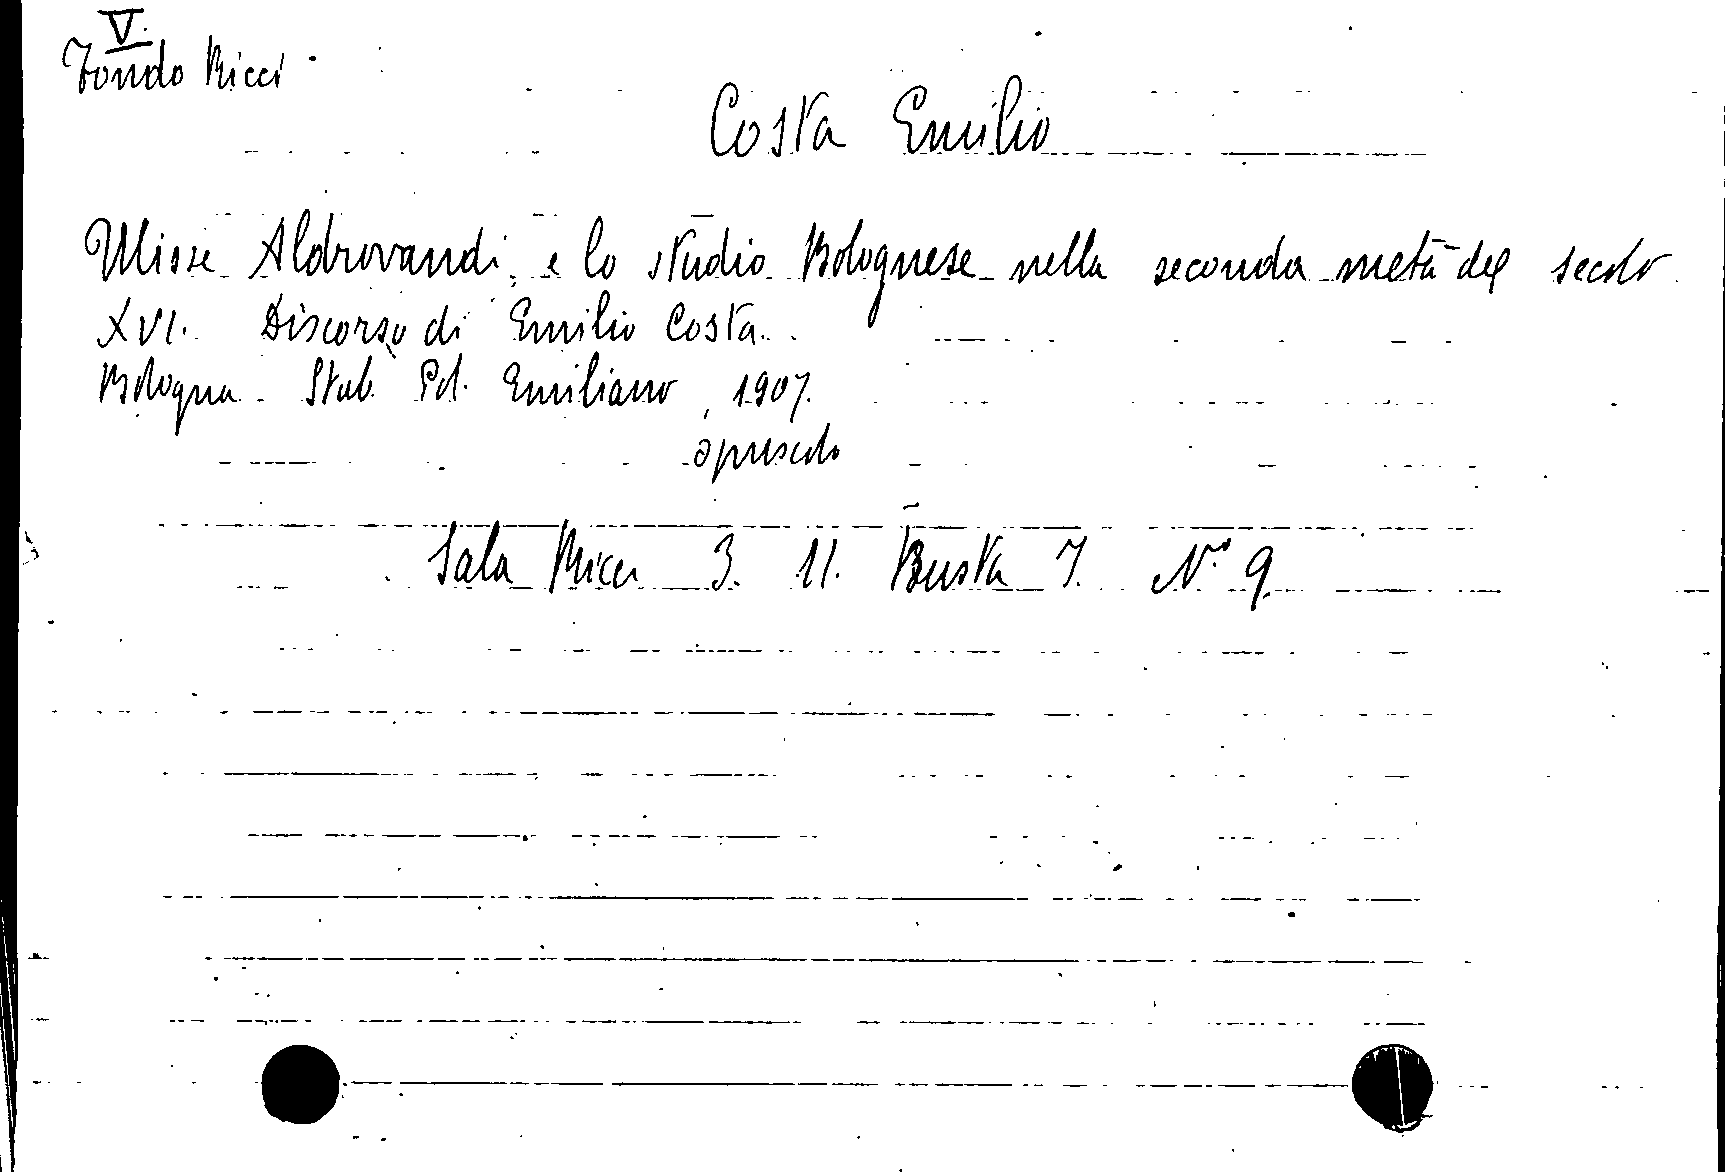 V.
Fondo Ricci
Costa Emilio
Ulisse Aldrovandi e lo studio Bolognese nella seconda metà del secolo
XVI. Discorso di Emilio Costa.
Bologna Stab. Ed. Emiliano, 1907.
opuscolo
Sala Ricci 3. 11. Busta 7. N.° 9.